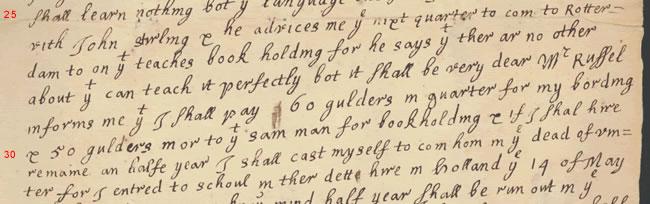 25 shall learn nothing bot yᵉ language
with John stirling & he advices me yᵉ nixt quarter to com to Rotter-
dam to on yᵗ teaches book holding for he says yᵗ ther ar no other
about yᵗ can teach it perfectly bot it shall be very dear Mʳ Russel
informs me yᵗ I shall pay 60 gulders in quarter for my bording
30 & 50 gulders mor to yᵗ sam man for bookholding & if I shal hire
remaine an halfe year I shall cast myself to com hom in yᵉ dead of vin=
ter for I entred to schoul in ther dette hire in holland yᵉ 14 of May
mind half year shall be run out in yᵉ